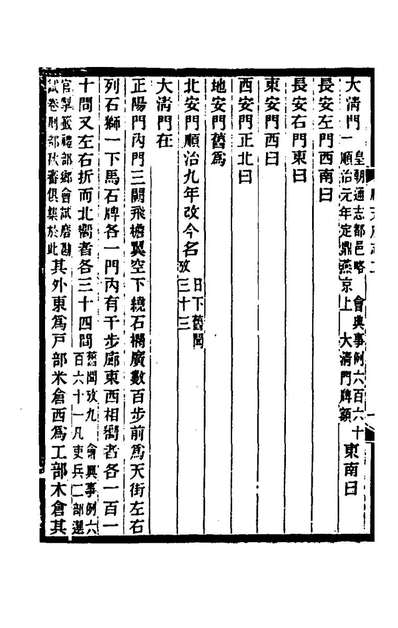 大清門皇朝通志都邑略 會典事例六百六十一順治元年定鼎燕京上 大清門牌額東南曰
長安左門西南曰
長安右門東曰
東安門西曰
西安門正北曰
地安門舊爲
北安門順治九年改今名日下舊聞攷三十三
大清門在
正陽門內門三闕飛檐翼空下繞石欄廣數百步前爲天街左右
列石獅一下馬石牌各一門內有千步廊東西相嚮者各一百一
十間又左右折而北嚮者各三十四間舊聞攷九 會典事例六百六十一凡吏兵二部選
官掣籤禮部鄉會試磨勘試卷刑部秋審俱集於此其外東爲戶部米倉西爲工部木倉其